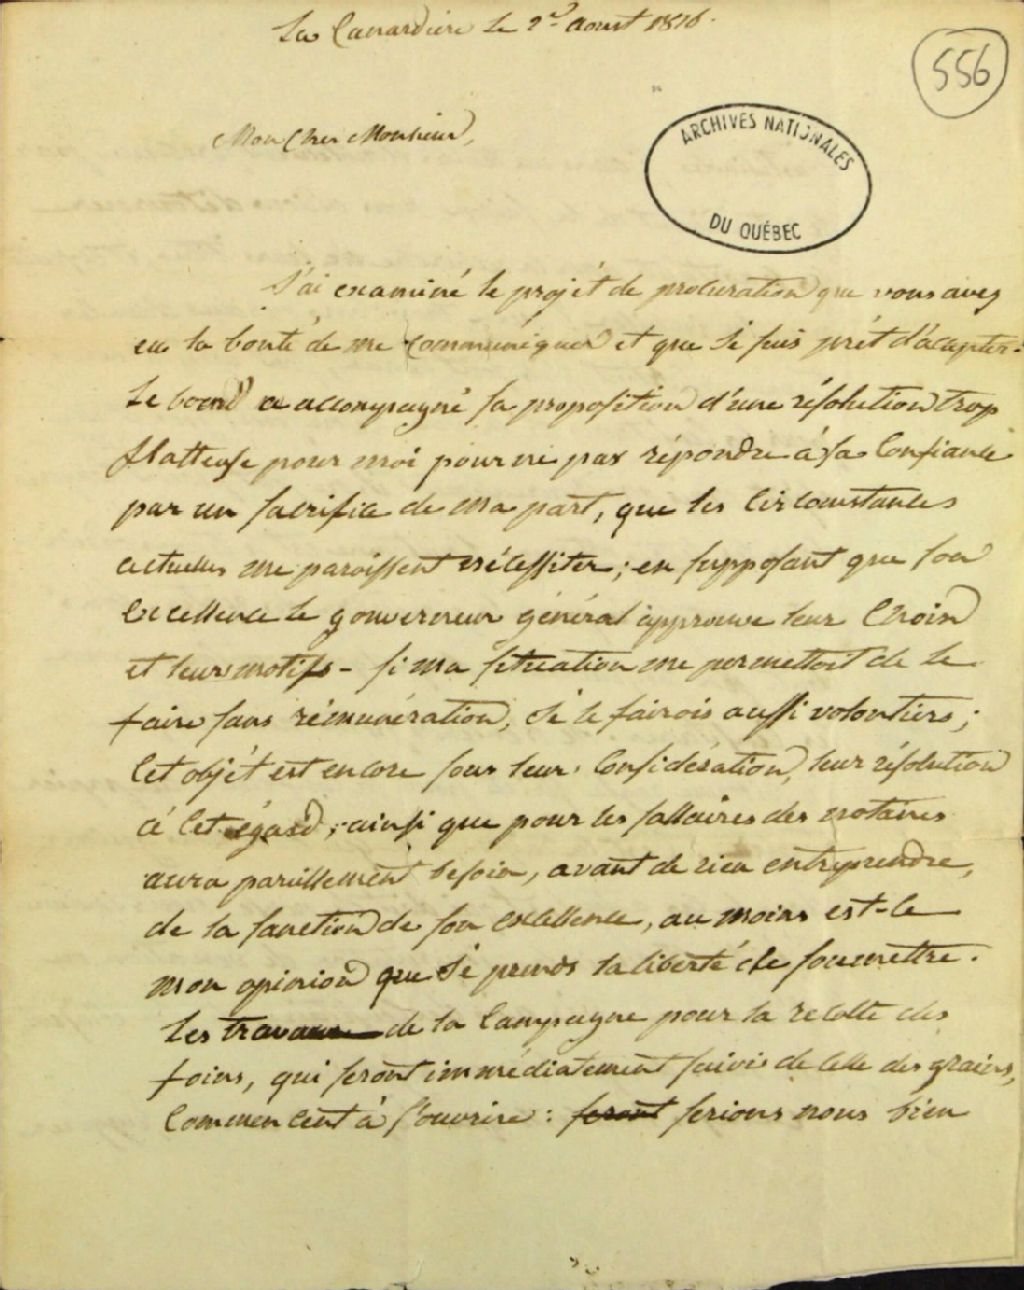 La Canardiere le 2d. Aoust 1816.
556
ARCHIVES NATIONALES
DU QUÉBEC
Mon Cher Monsieur,
J'ai examiné le projét de procuration que vous avez
eu la bonté de me communiquer et que Je suis prét d'accepter.
Le board a accompagné sa proposition d'une résolution trop
flatteuse pour moi pour ne pas répondre à sa Confiance
par un sacrifice de ma part, que les Circonstances
actuelles me paroissent nécessiter; en supposant que son
Excellence le gouverneur général approuve leur Choix
et leur motifs - si ma situation me permettoit de le
faire sans rémunération, Je le fairois aussi volontiers;
Cet objét est encore sous leur Considération, leur résolution
à Cet égard; ainsi que pour les sallaires des notaires
aura pareillement besoin, avant de rien entreprendre,
de la sanction de son excellence, au moins est-ce
mon opinion que Je prends la liberté de soumettre.
Les travaux de la Campagne pour la recolte des
foins, qui seront immédiatement suivis de celle des grains,
Commencent à s'ouvrire: seront serions nous bien